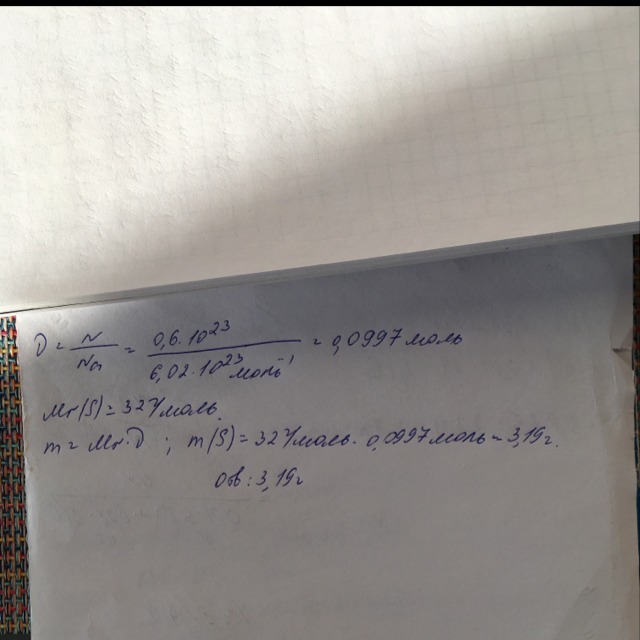 ν = N/Na = 0,6·10²³/6,02·10²³ моль⁻¹ = 0,0997 моль
Mr(S) = 32 г/моль.
m = Mr·ν ; m(S) = 32 г/моль · 0,0997 моль = 3,19 г.
Отв: 3,19 г